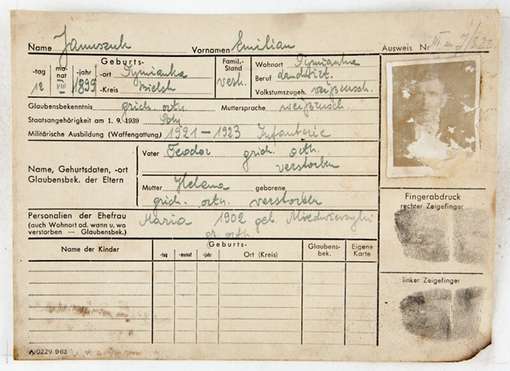 Name Januszuk Vornamen Emilian Ausweis Nr.
Geburts- Famil.- Stand Wohnort Rymianka
-tag mo- nat -jahr -ort Rymianka Beruf Landwirt.
12 VIII 1899 -Kreis Bielsk verh. Volkstumszugeh. weißrusch.
Glaubensbekenntnis grich. orth. Muttersprache weißrusch.
Staatsangehörigkeit am 1. 9. 1939 Poln
Militärische Ausbildung (Waffengattung) 1921 – 1923 Infanterie
Name, Geburtsdaten, -ort Glaubensbek. der Eltern
Vater Teodor grich. orth.
verstorben
Mutter Helena geborene
grich. orth. verstorben
Personalien der Ehefrau Maria 1902 geb.
(auch Wohnort od. wann u. wo verstorben — Glaubensbek.) gr. orth.
Name der Kinder Geburts- Glaubens- bek. Eigene Karte
-tag -monat -jahr Ort (Kreis)
Fingerabdruck
rechter Zeigefinger
linker Zeigefinger